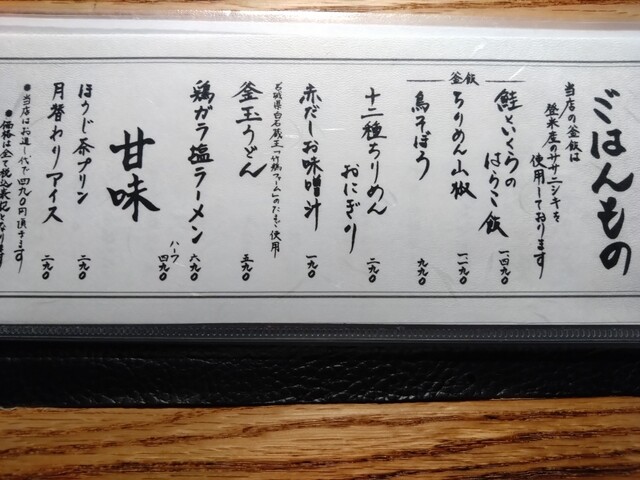 ごはんもの
当店の釜飯は
登米産のササニシキを
使用しております
釜飯
鮭といくらの
はらこ飯
一四九〇
ちりめん山椒
一一九〇
鳥そぼろ
九九〇
十二種ちりめん
おにぎり
二九〇
赤だしお味噌汁
一九〇
釜玉うどん
宮城県白石蔵王「竹鶏ファーム」のたまご使用
五九〇
鶏ガラ塩ラーメン
六九〇
ハーフ
四九〇
甘味
ほうじ茶プリン
二九〇
月替わりアイス
二九〇
●当店はお通し代で四九〇円頂きます
●価格は全て税込表記となります